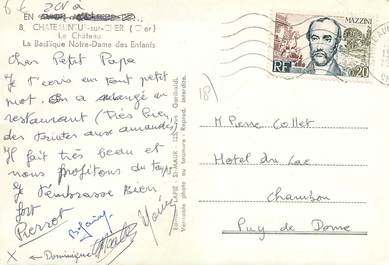 6 € 201a
EN
8, CHATEAUNEUF-sur-CHER (Cher)
Le Château
La Basilique Notre-Dame des Enfants
Cher Petit Papa
Je t'écris un tout petit
mot. On a mangé en
restaurant (Très bien
des truites aux amandes)
Il fait très beau et
nous profitons du temps
Je t'embrasse Bien
fort
Pierrot
X ← Dominique
MAZZINI
RF
0.20
POSTES
18
Editions LAPIE - ST-MAUR - Garibaldi.
Véritable photo au bromure - Reprod. interdite.
M Pierre Collet
Hotel du Lac
Chambon
Puy de Dome